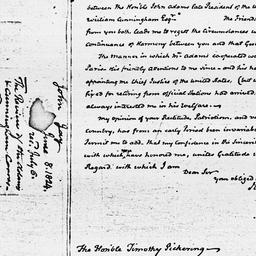 between the Honble John Adams late President of the U
William Cunningham Esqr. The Friends
from you both leads me to regret the Circumstances w
continuance of Harmony between you and that Gen
The manner in which Mr. Adams
Paris His friendly attentions to me since - and his ha
appointing me chief Justice of the United States, (but a
fixed for retiring from official Stations had arrived,
always interested me in his welfare.—
My opinion of your Rectitude, Patriotism, and
Country, has from an early Period been invariable
Permit me to add, that my confidence in the Sincerity
with which you have honored me, unites Gratitude
Regard with which I am
Dear Sir
your obliged
The Honble Timothy Pickering —
John Jay
June 8. 1824,
recd July 6.
The Review of Mr. Adams
& Cunningham Corres.